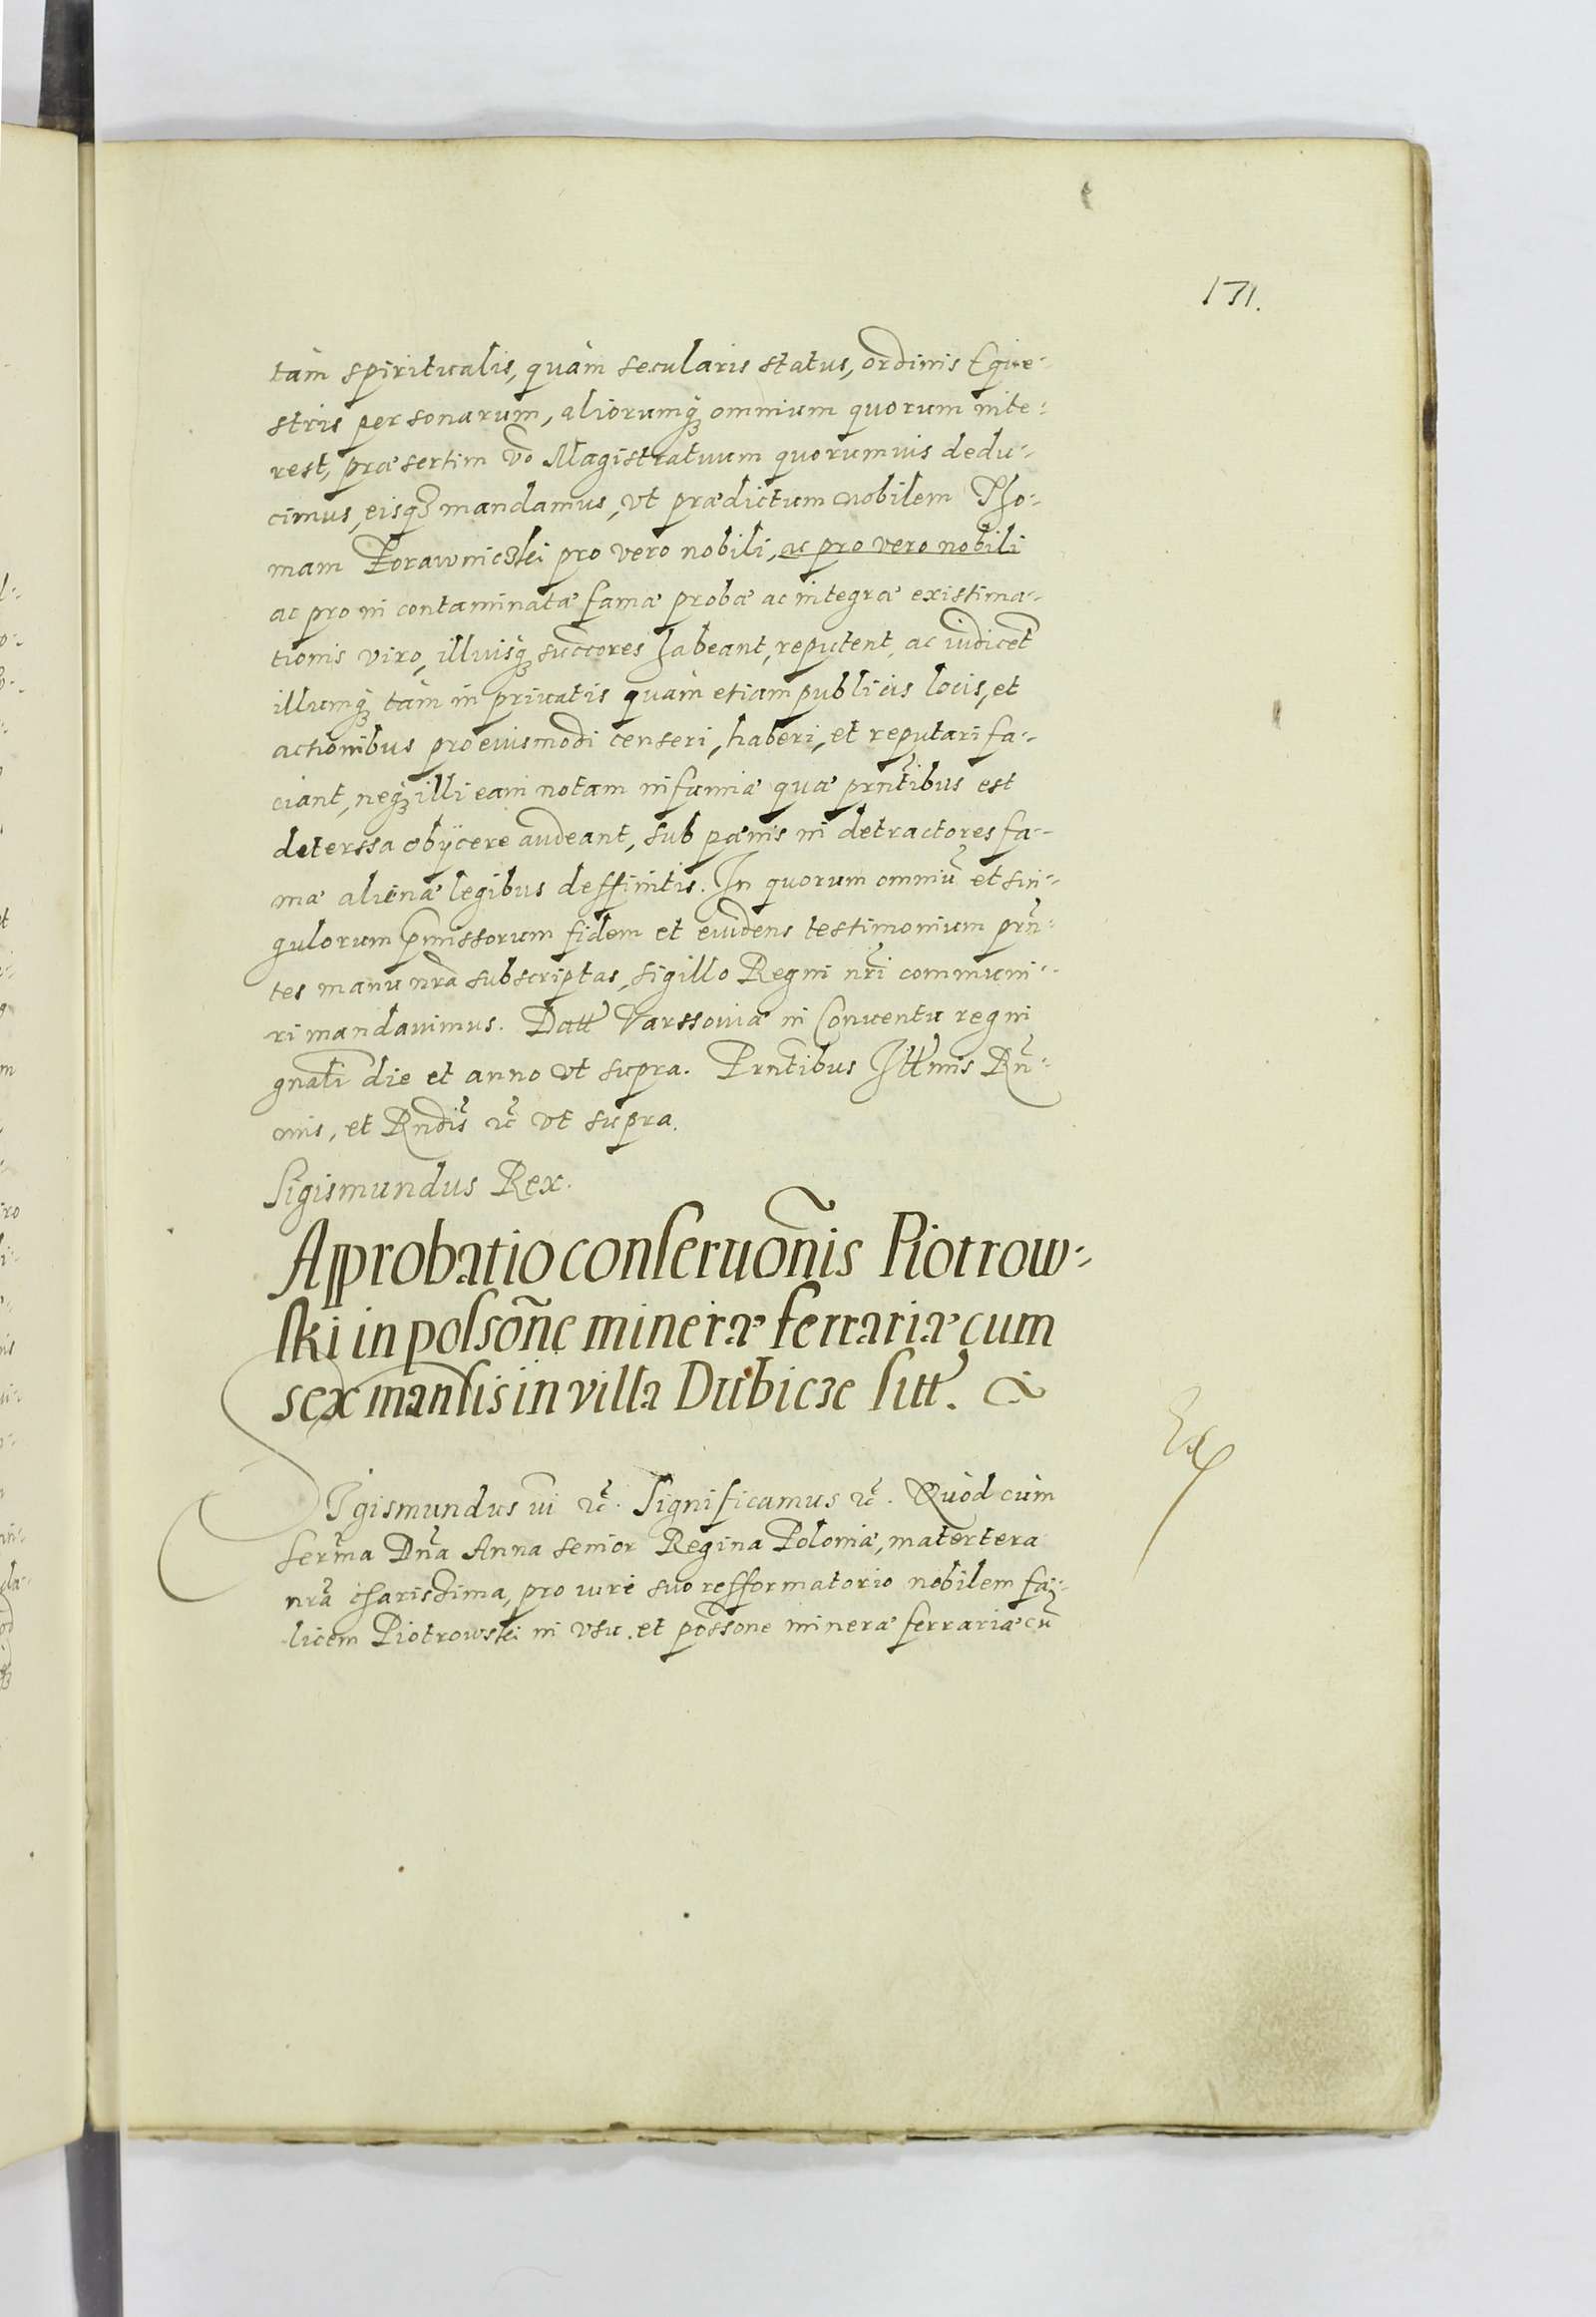 171.
tàm spiritualis, quàm secularis status, ordinis Eque-
stris personarum, aliorumq3 omnium quorum inte-
rest, præsertim vo Magistratuum quorumuis dedu-
cimus, eisq3 mandamus, vt prædictum nobilem Tho-
mam Porawnicski pro vero nobili, ac pro vero nobili
ac pro incontaminatæ famæ probæ ac integræ existima-
tionis viro, illiusq3 succores habeant, reputent, ac iudicet
illumq3 tàm in priuatis quàm etiam publicis locis, et
actionibus pro eiusmodi censeri, haberi, et reputari fa-
ciant, neq3 illi eam notam infamiæ quæ prntibus est
deterssa obijcere audeant, sub pænis in detractores fa-
mæ alienæ legibus deffinitis. In quorum omniũ et sin-
gulorum pmissorum fidem et euidens testimonium prñ-
tes manu nra subscriptas, sigillo Regni nri communi-
ri mandauimus. Datt Varssouiæ in Conuentu regni
gnali die et anno vt supra. Prntibus Illmis Rñ-
mis, et Rndis etc vt supra.
Sigismundus Rex.
Approbatio conseruõnis Piotrow-
ski in possõne mineræ ferrariæ cum
sex mansis in villa Dubicze sitt.
Sigismundus III etc. Significamus etc. Quòd cùm
serma Dna Anna senior Regina Poloniæ, matertera
nra charissima, pro iure suo refformatorio nobilem fæ-
licem Piotrowski in vsu et possone mineræ ferrariæ cũ